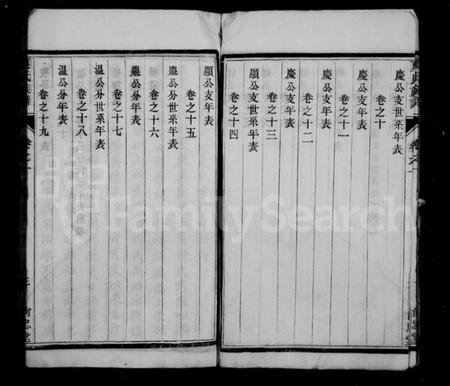 慶公支世系年表
卷之十
慶公支年表
卷之十一
慶公支年表
卷之十二
慶公支年表
卷之十三
顯公支世系年表
卷之十四
顯公支年表
卷之十五
巽公分世系年表
卷之十六
巽公分年表
卷之十七
溫公分世系年表
卷之十八
溫公分年表
卷之十九
FamilySearch